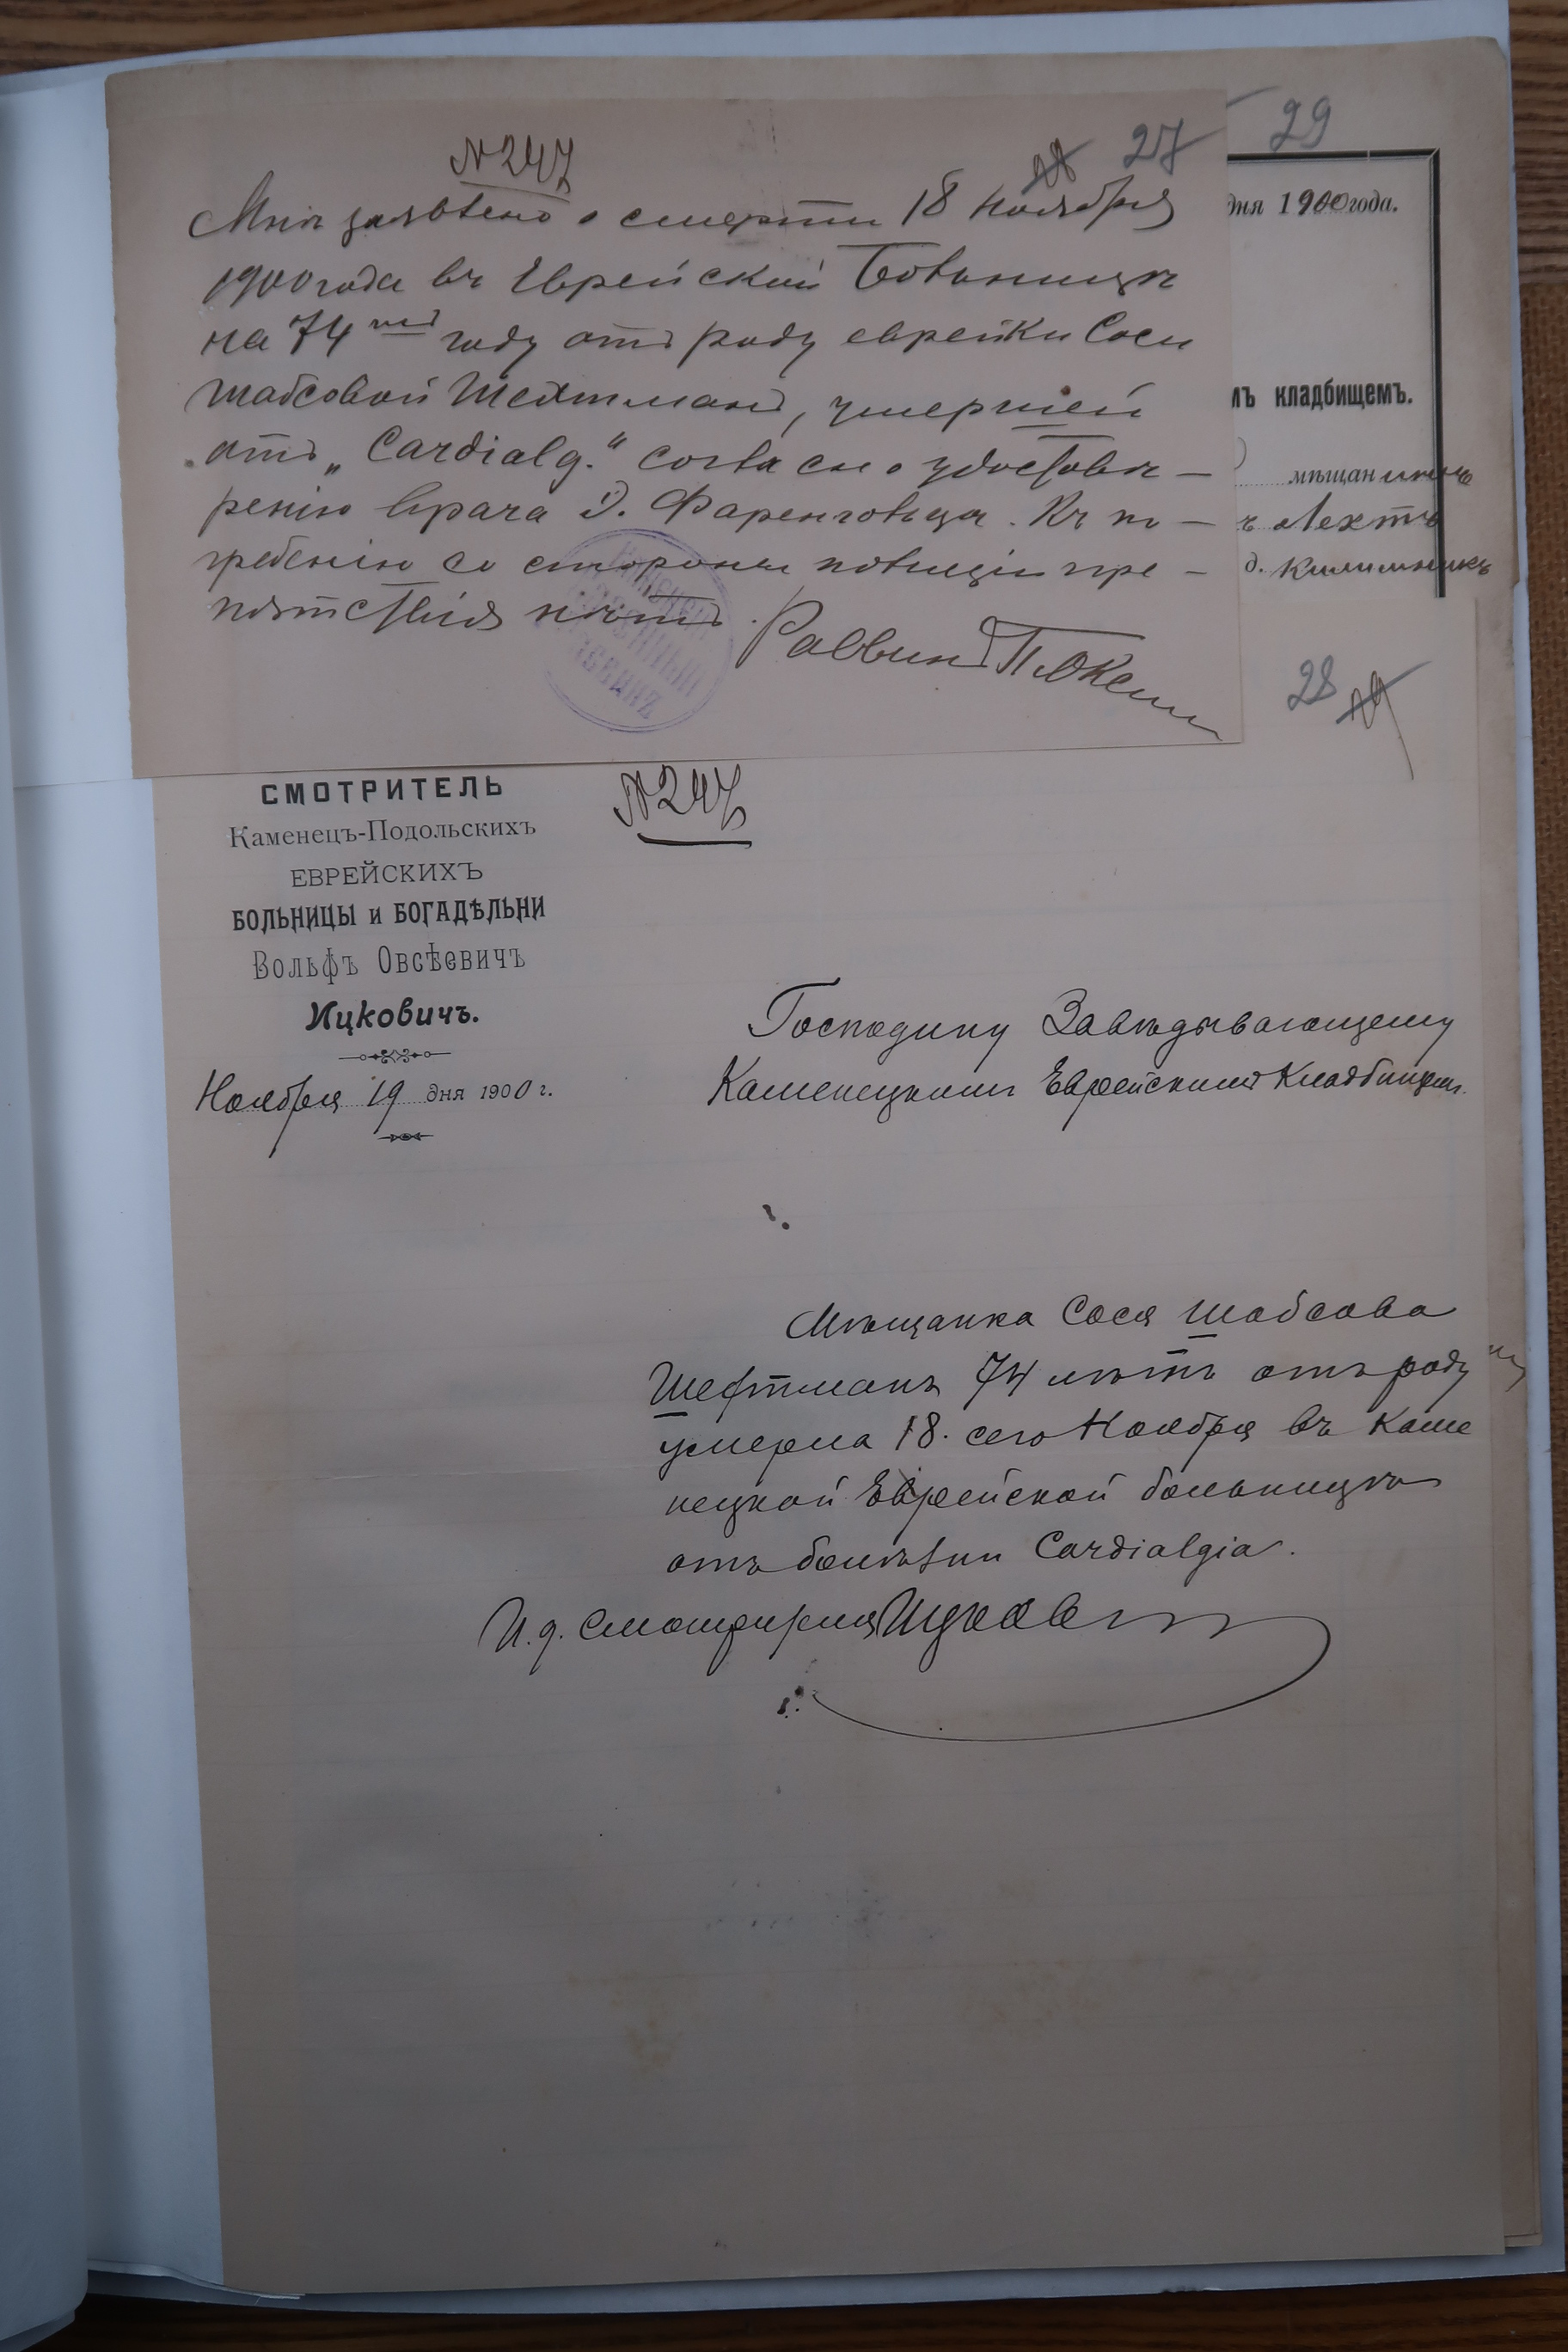 27
29
№ 247
Мнѣ заявлено о смерти 18 Ноября
1900 года въ Еврейской Больницѣ
на 74мъ году отъ роду еврейки Соси
Шабсовой Шехтманъ, умершей
отъ „Cardialg.“ согласно удостовѣ-
ренію врача д. Фаренгольца. Къ по-
гребенію со стороны полиціи пре-
пятствія нѣтъ.
Раввинъ
дня 1900 года.
мъ кладбищемъ.
мѣщанинъ
ъ Лехтъ
д.
28
СМОТРИТЕЛЬ
Каменецъ-Подольскихъ
ЕВРЕЙСКИХЪ
БОЛЬНИЦЫ и БОГАДѢЛЬНИ
Вольфъ Овсѣевичъ
Ицковичъ.
Ноября 19 дня 1900 г.
№ 247
Господину Завѣдывающему
Каменецкимъ Еврейскимъ Кладбищемъ.
Мѣщанка Сося Шабсова
Шефтманъ 74 лѣтъ отъ роду
умерла 18. сего Ноября въ Каме
нецкой Еврейской больницѣ
отъ болѣзни Cardialgia.
И. д. Смотрителя Ицкович